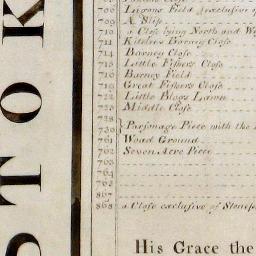 708 Lugons Field exclusive of
709 A Slip
710 a Close lying North and We
711 Kitchers Barney Close
714 Barney Close
715 Little Fishers Close
716 Barney Field
719 Great Fishers Close
722 Little Blogs Lawn
726 Middle Close
728
730 Parsonage Piece with the
761 Woad Ground
762 Seven Acre Piece
763
764
765
867
868 a Close exclusive of Stones
His Grace the
STOK